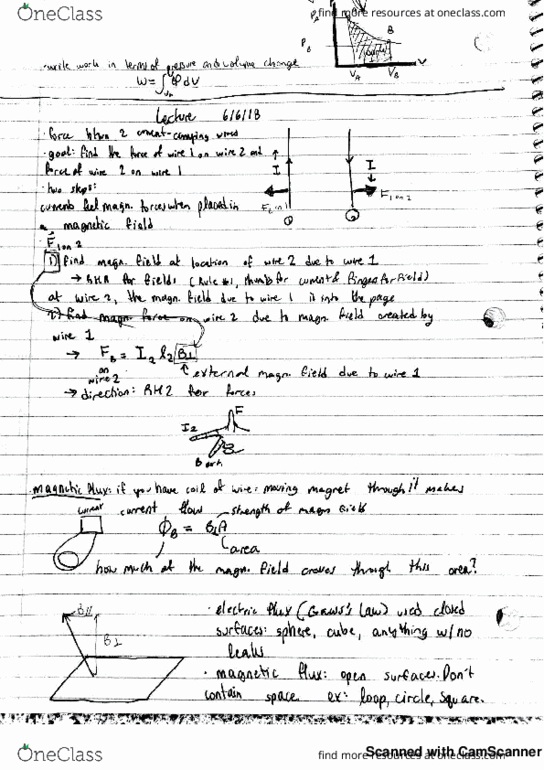 OneClass
find more resources at oneclass.com
P_A
P_B
B
V
V_A
V_B
·write work in terms of pressure and volume change
W = ∫ P dV
Lecture 6/6/18
·force btwn 2 current-carrying wires
·goal: find the force of wire 1 on wire 2 and
force of wire 2 on wire 1
·two steps:
currents feel magn. forces when placed in
a magnetic field
I
F 2 on 1
I
F 1 on 2
1
2
F 1 on 2
1) find magn. field at location of wire 2 due to wire 1
→ RHR for fields (Rule #1, thumb for current & fingers for field)
at wire 2, the magn. field due to wire 1 is into the page
2) find magn. force on wire 2 due to magn. field created by
wire 1
→ F_B = I_2 l_2 B⊥
on wire 2
external magn. field due to wire 1
→ direction: RH2 for forces
F
I2
B
·magnetic flux: if you have coil of wire: moving magnet through it makes
current flow
current
strength of magn field
Φ_B = B⊥A
area
how much of the magn. field crosses through this area?
B//
B⊥
·electric flux (Gauss's Law) used closed
surfaces: sphere, cube, anything w/ no
leaks
·magnetic flux: open surfaces. Don't
contain space ex: loop, circle, square.
Scanned with CamScanner
OneClass
find more resources at oneclass.com